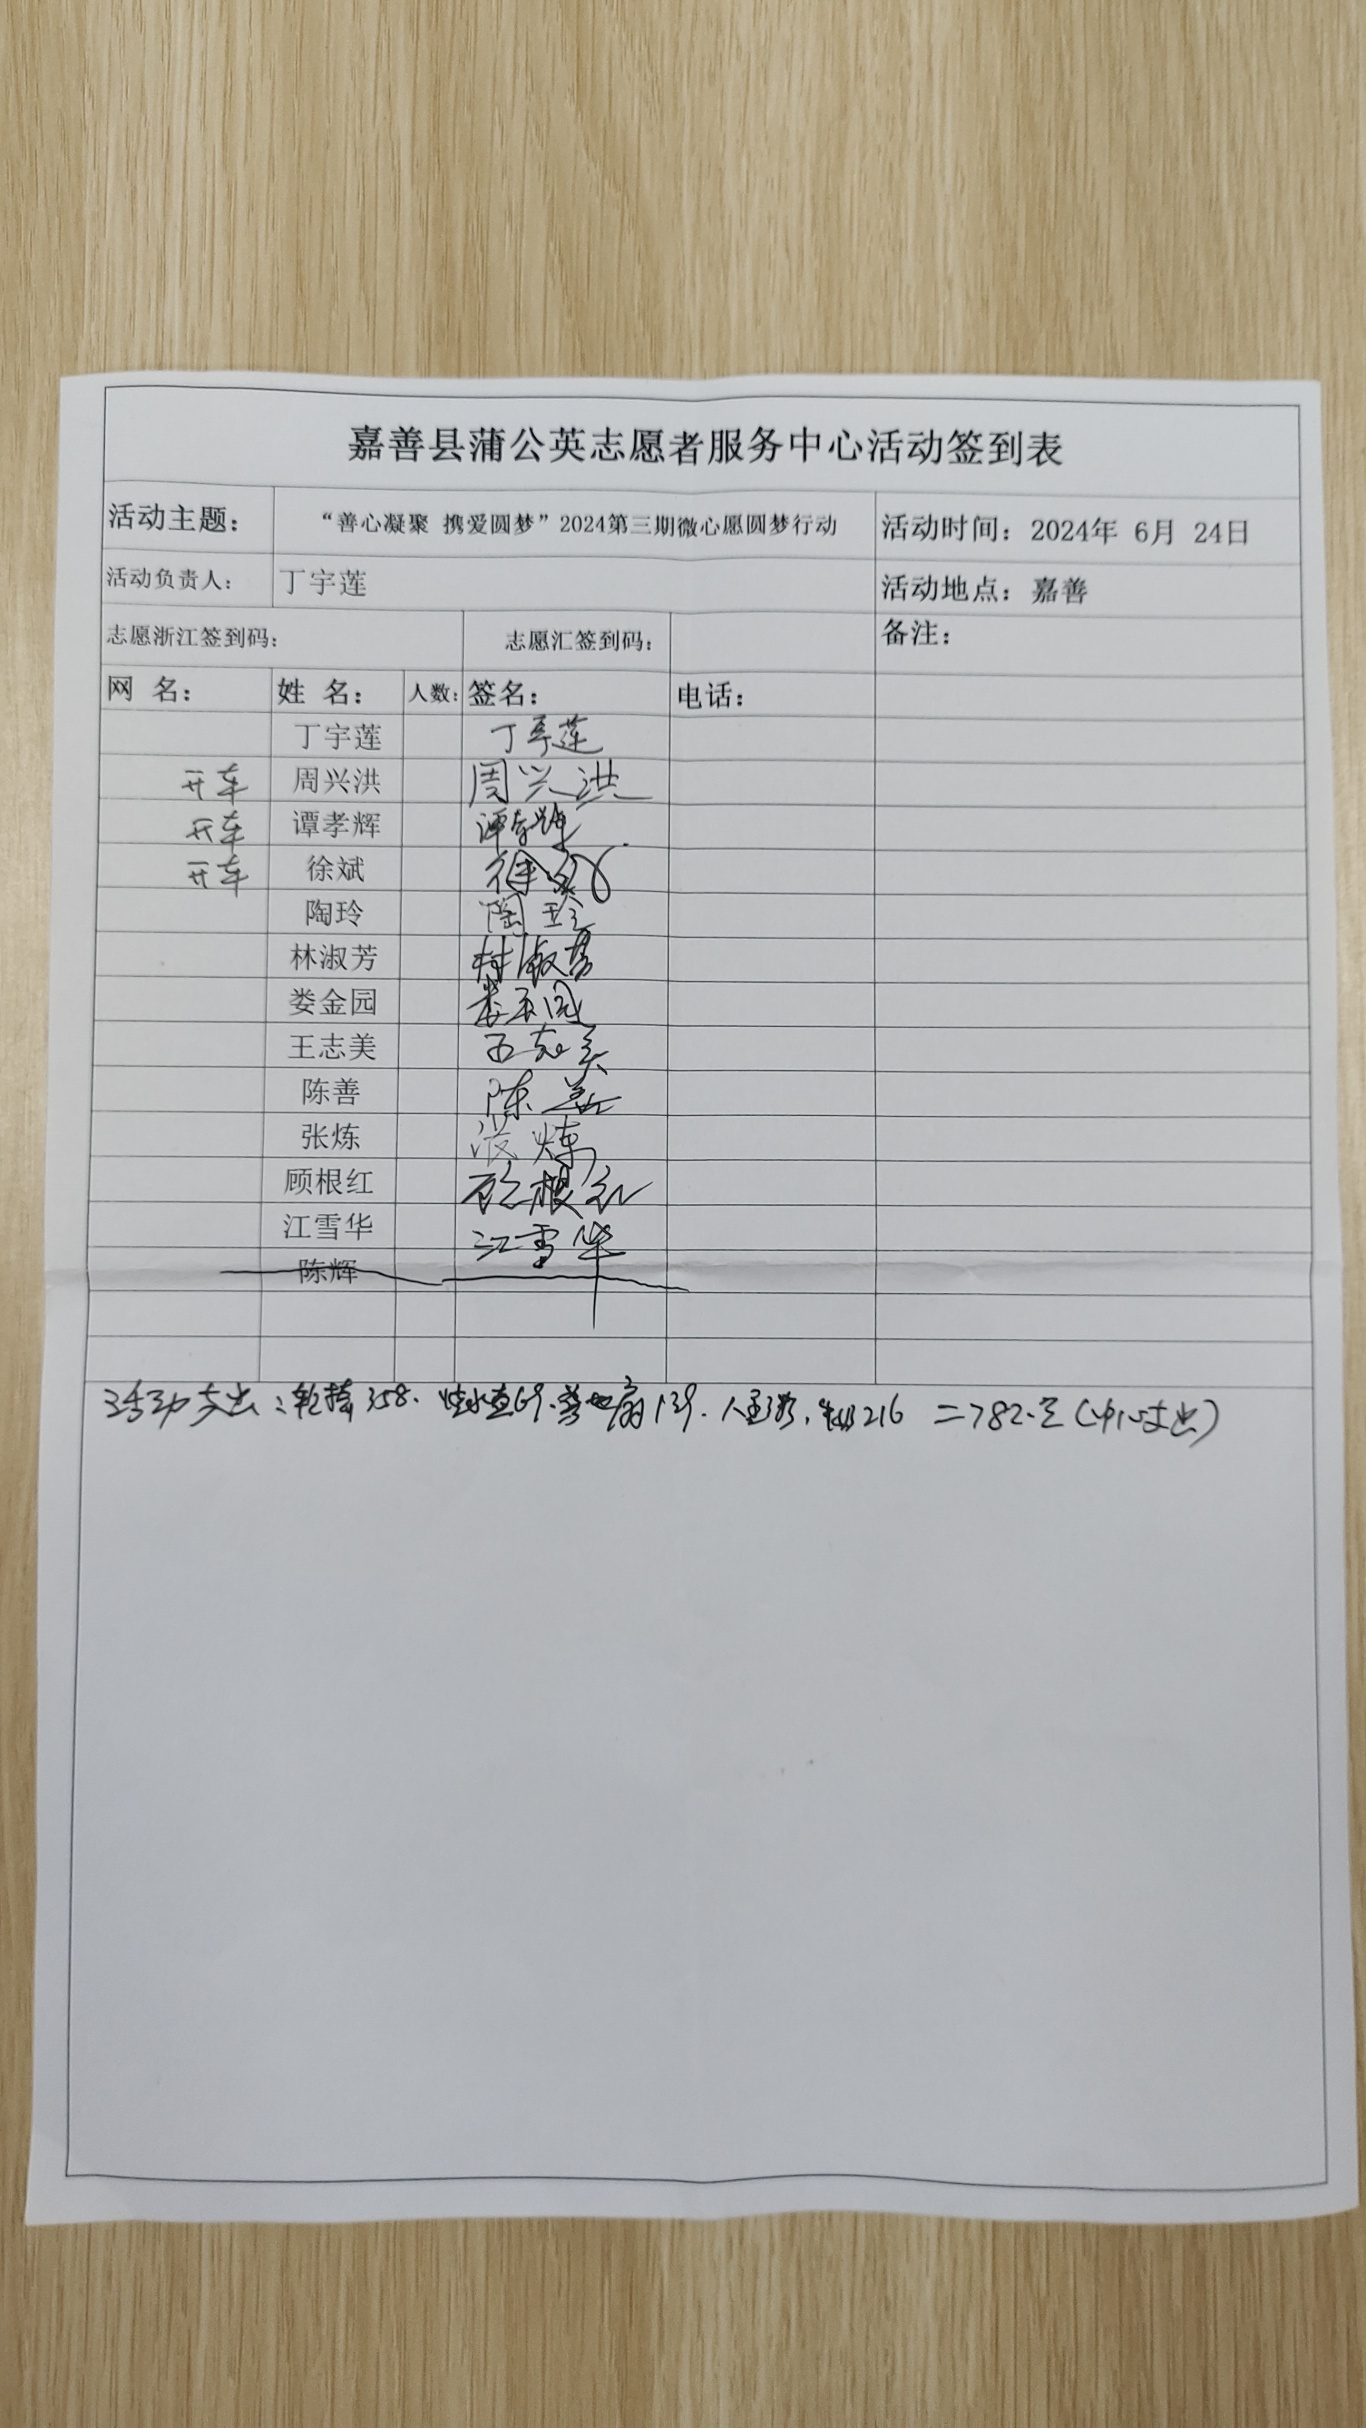 嘉善县蒲公英志愿者服务中心活动签到表
活动主题： “善心凝聚 携爱圆梦”2024第三期微心愿圆梦行动 活动时间：2024年 6月 24日
活动负责人： 丁宇莲 活动地点：嘉善
志愿浙江签到码： 志愿汇签到码： 备注：
网 名： 姓 名： 人数： 签名： 电话：
丁宇莲 丁宇莲
开车 周兴洪 周兴洪
开车 谭孝辉 谭孝辉
开车 徐斌 徐斌
陶玲 陶玲
林淑芳 林淑芳
娄金园 娄金园
王志美 王志美
陈善 陈善
张炼 张炼
顾根红 顾根红
江雪华 江雪华
陈辉
活动支出：轮椅358. 烧水壶69. 落地扇139. 216 =782.元(中心支出)